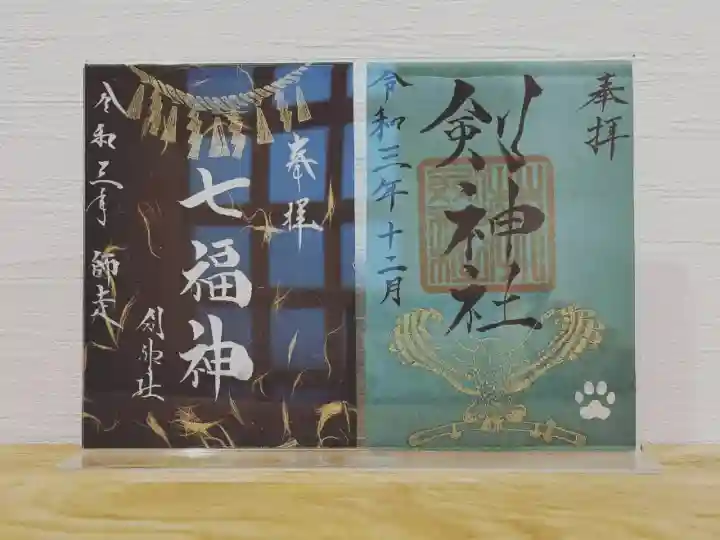 奉拝
剣神社
令和三年十二月
奉拝
七福神
剣神社
令和三年 師走